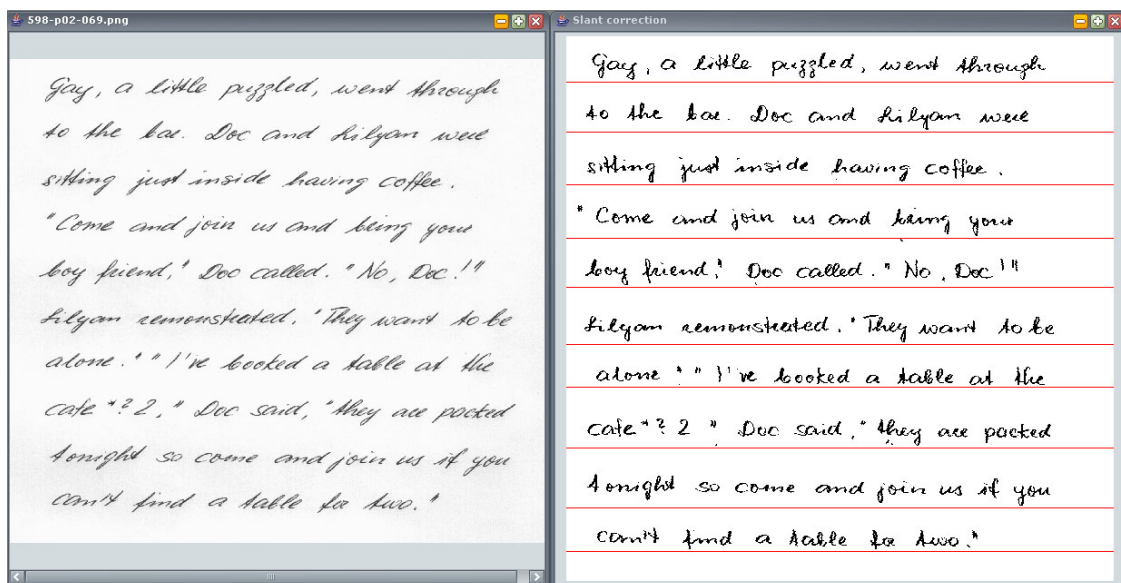 598-p02-069.png
Gay, a little puzzled, went through
to the bar. Doc and Lilyan were
sitting just inside having coffee.
"Come and join us and bring your
boy friend," Doc called. "No, Doc!"
Lilyan remonstrated. "They want to be
alone." "I've booked a table at the
cafe "? 2," Doc said, "they are packed
tonight so come and join us if you
can't find a table for two."
Slant correction
Gay, a little puzzled, went through
to the bar. Doc and Lilyan were
sitting just inside having coffee.
"Come and join us and bring your
boy friend," Doc called. "No, Doc!"
Lilyan remonstrated. "They want to be
alone " "I've booked a table at the
cafe "? 2 " Doc said, "they are packed
tonight so come and join us if you
can't find a table for two."